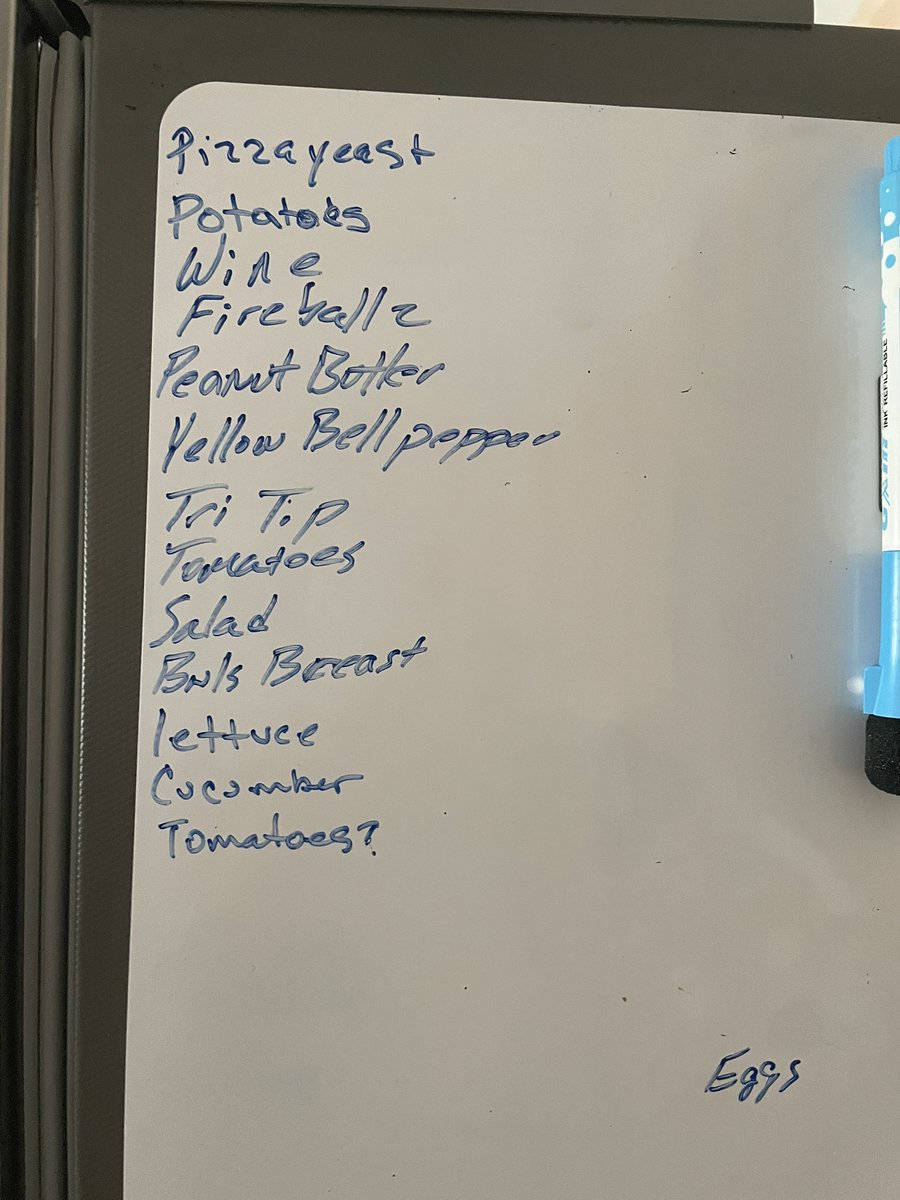 Pizza yeast
Potatoes
Wine
Fireball 2
Peanut Butter
Yellow Bell pepper
Tri Tip
Tomatoes
Salad
Bnls Breast
lettuce
Cucumber
Tomatoes?
Eggs
INK REFILLABLE